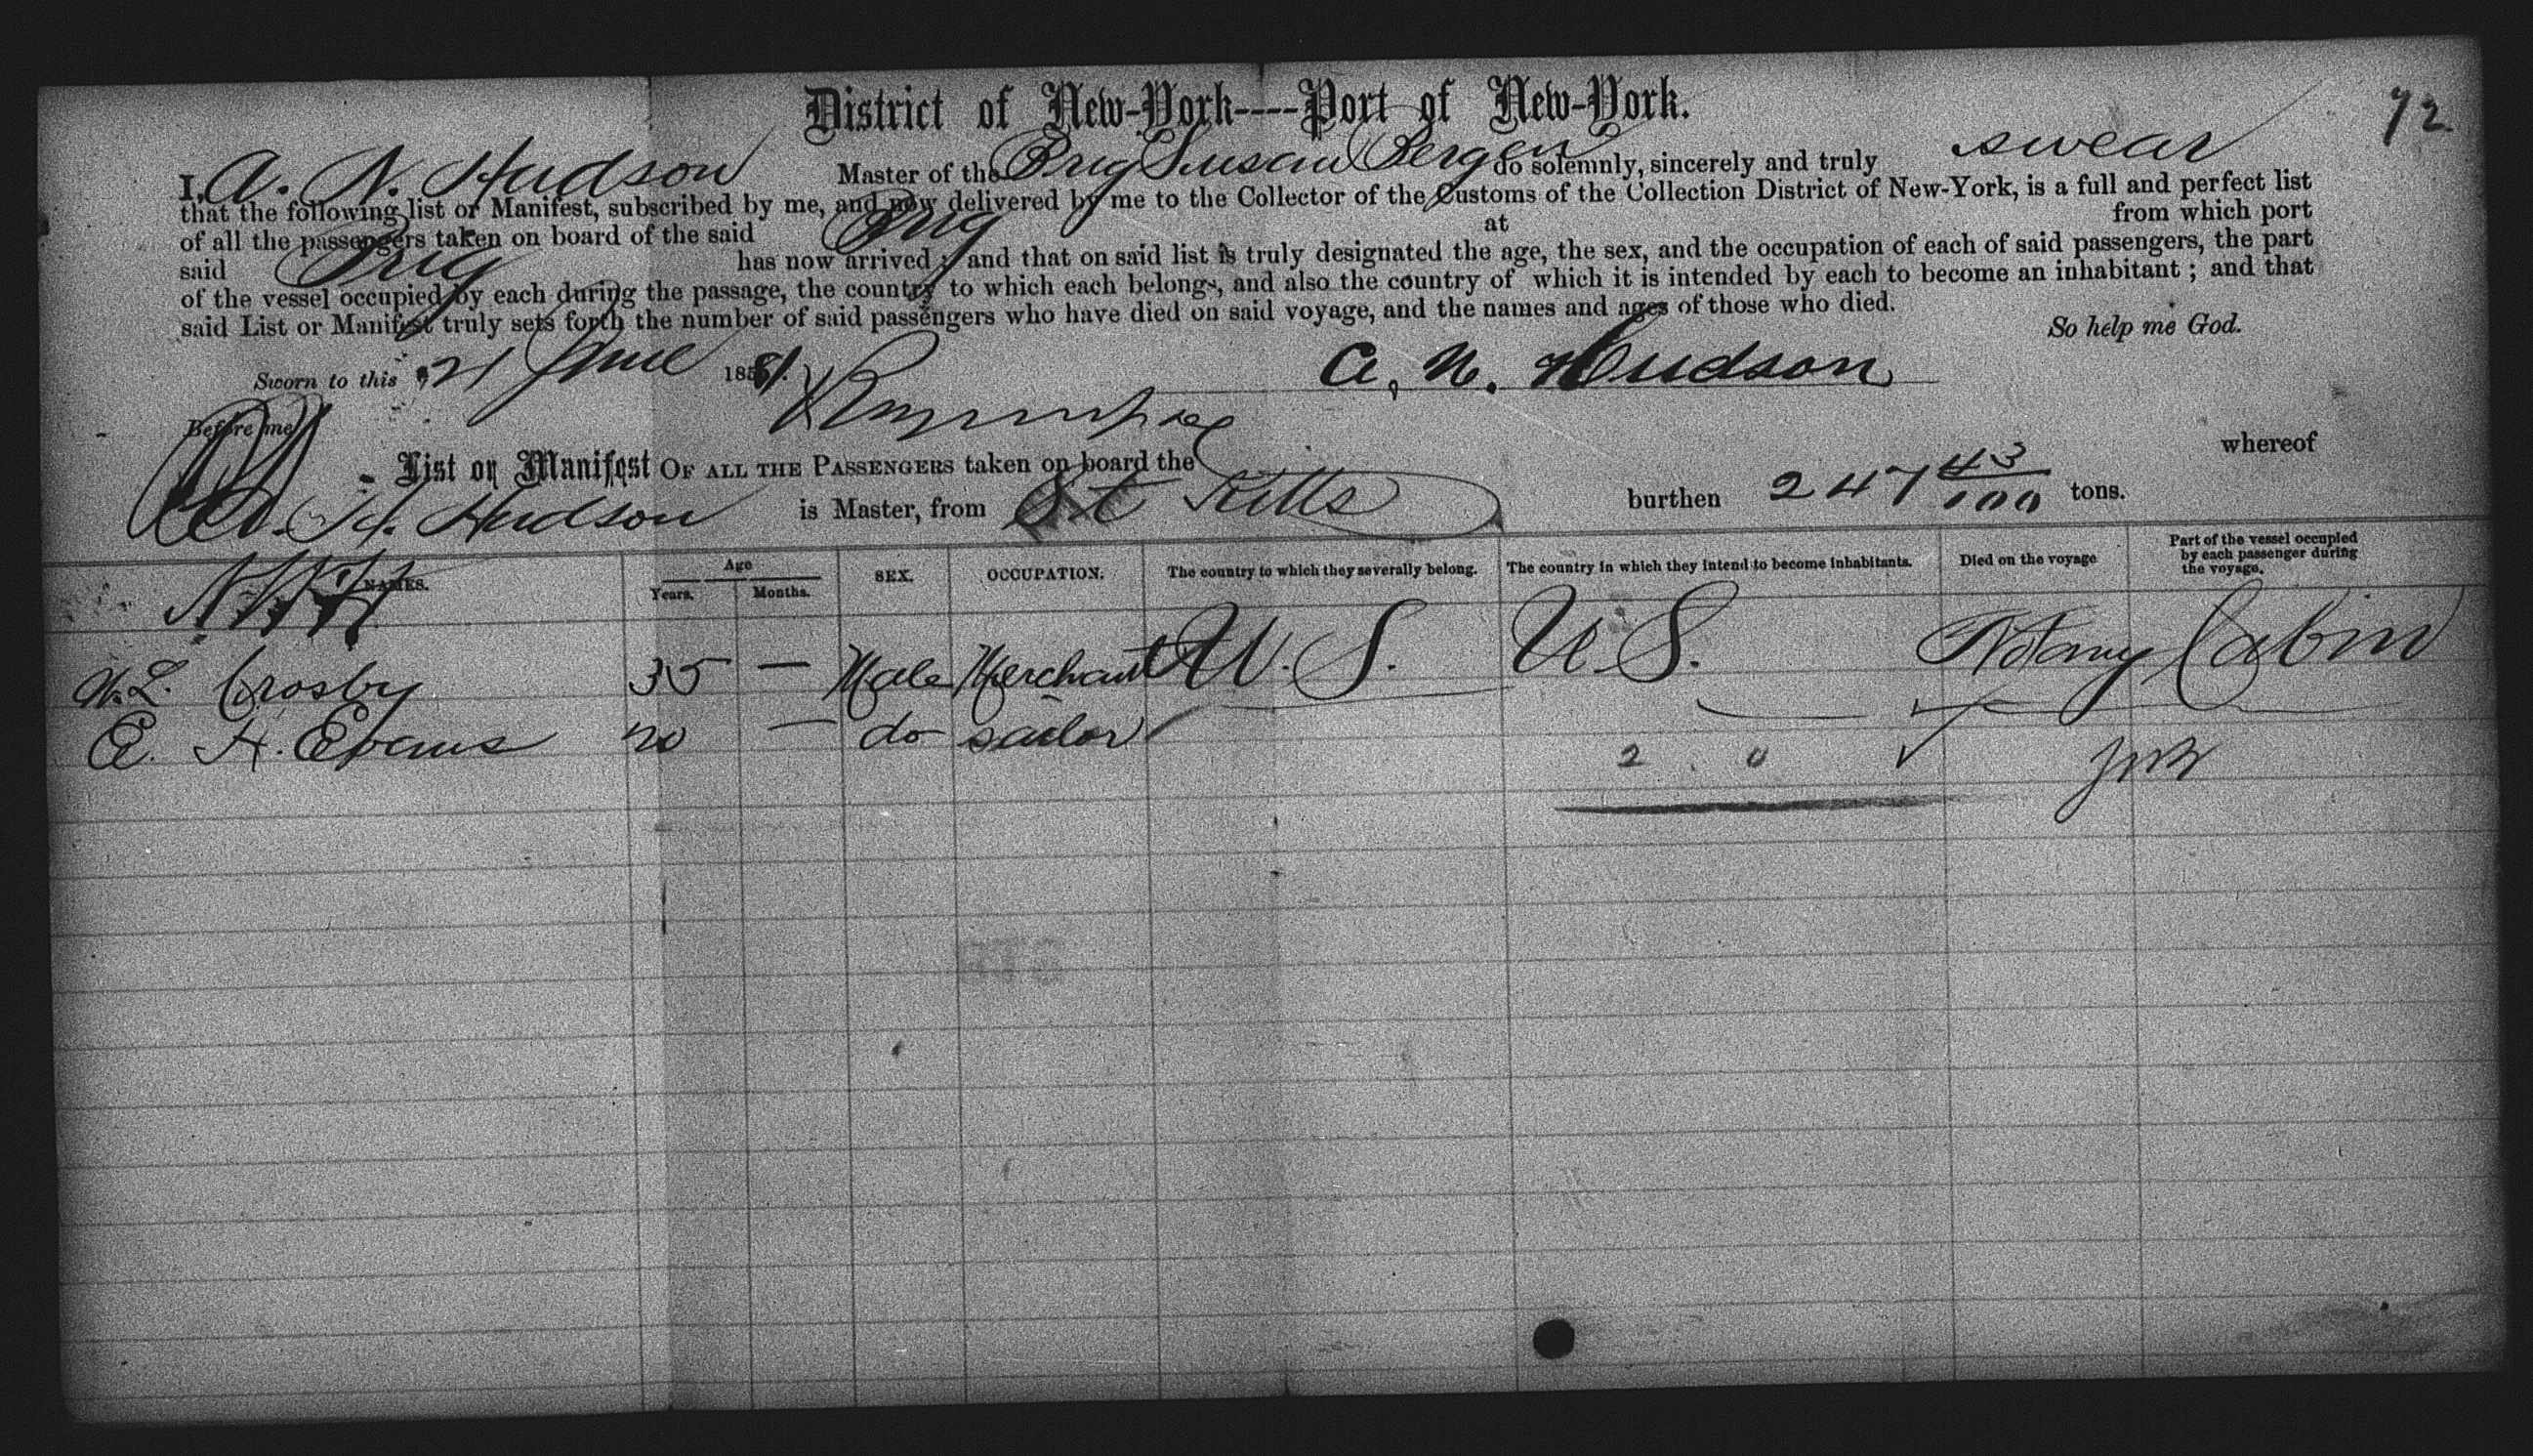 District of New-York----Port of New-York.
I, A. N. Hudson Master of the Brig Susan Bergen do solemnly, sincerely and truly swear
that the following list or Manifest, subscribed by me, and now delivered by me to the Collector of the Customs of the Collection District of New-York, is a full and perfect list
of all the passengers taken on board of the said Brig at from which port
said Brig has now arrived; and that on said list is truly designated the age, the sex, and the occupation of each of said passengers, the part
of the vessel occupied by each during the passage, the country to which each belongs, and also the country of which it is intended by each to become an inhabitant; and that
said List or Manifest truly sets forth the number of said passengers who have died on said voyage, and the names and ages of those who died.
So help me God.
Sworn to this 21 June 18 A. N. Hudson
Before me
List or Manifest OF ALL THE PASSENGERS taken on board the whereof
Hudson is Master, from St Kitts burthen 247 43/100 tons.
NAMES. Age Years. Months. SEX. OCCUPATION. The country to which they severally belong. The country in which they intend to become inhabitants. Died on the voyage Part of the vessel occupied by each passenger during the voyage.
Crosby 35 — Male Merchant U. S. U. S. Cabin
H. Evans 20 — do sailor
2 0
72